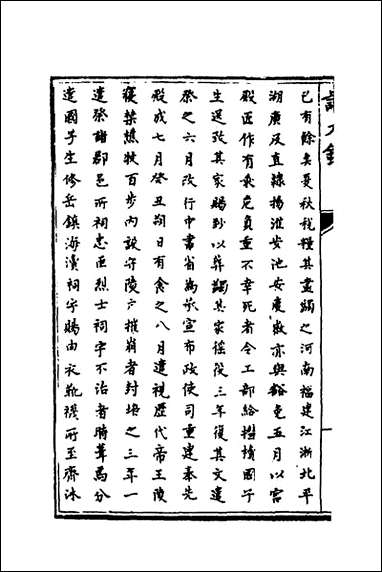 已有餘矣夏秋稅糧其盡蠲之河南福建江浙北平
湖廣及直隸揚淮安池安慶徽亦與豁免五月以宮
殿匠作有乘危負重不幸死者令工部給槥櫝國子
生送致其家賜鈔以葬蠲其家徭役三年復其文遣
祭之六月改行中書省為承宣布政使司重建奉先
殿成七月癸丑朔日有食之八月遣視歷代帝王陵
寢禁樵牧百步內設守陵戶摧崩者封培之三年一
遣祭諸郡邑所祠忠臣烈士祠宇不治者時葺焉分
遣國子生修岳鎮海瀆祠宇賜由衣靴襪所至齋沐